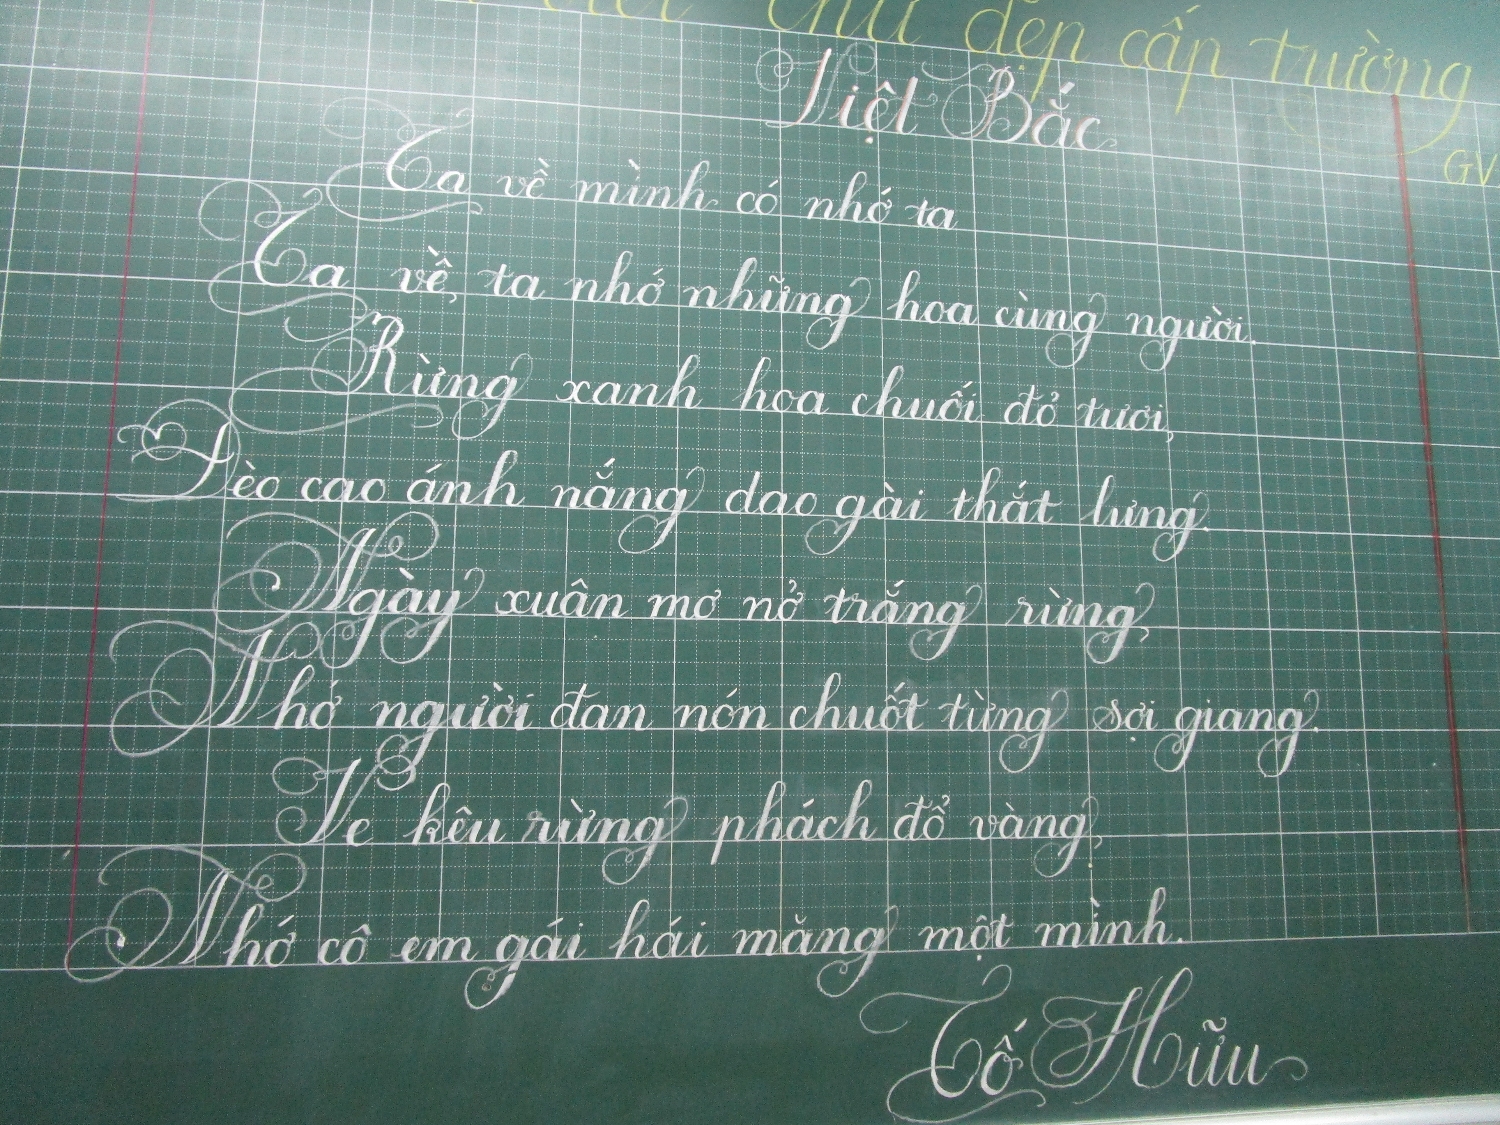 chữ đẹp cấp trường
GV
Việt Bắc
Ta về mình có nhớ ta
Ta về, ta nhớ những hoa cùng người.
Rừng xanh hoa chuối đỏ tươi,
Đèo cao ánh nắng dao gài thắt lưng.
Ngày xuân mơ nở trắng rừng,
Nhớ người đan nón chuốt từng sợi giang.
Ve kêu rừng phách đổ vàng,
Nhớ cô em gái hái măng một mình.
Tố Hữu